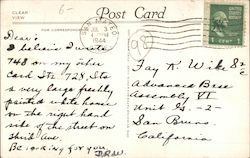 CLEAR VIEW
6-
Post Card
SAN MATEO
JUL 3
1944
1 CENT 1
98
Dear:
I believe I wrote
748 on my other
card. Its 728. Its
a very large freshly
painted white house
on the right hand
side of the street on
third Ave.
Be looking for you.
Fay K. Wike S2/c
Advanced Base
Assembly
Unit G-2-
San Bruno
California